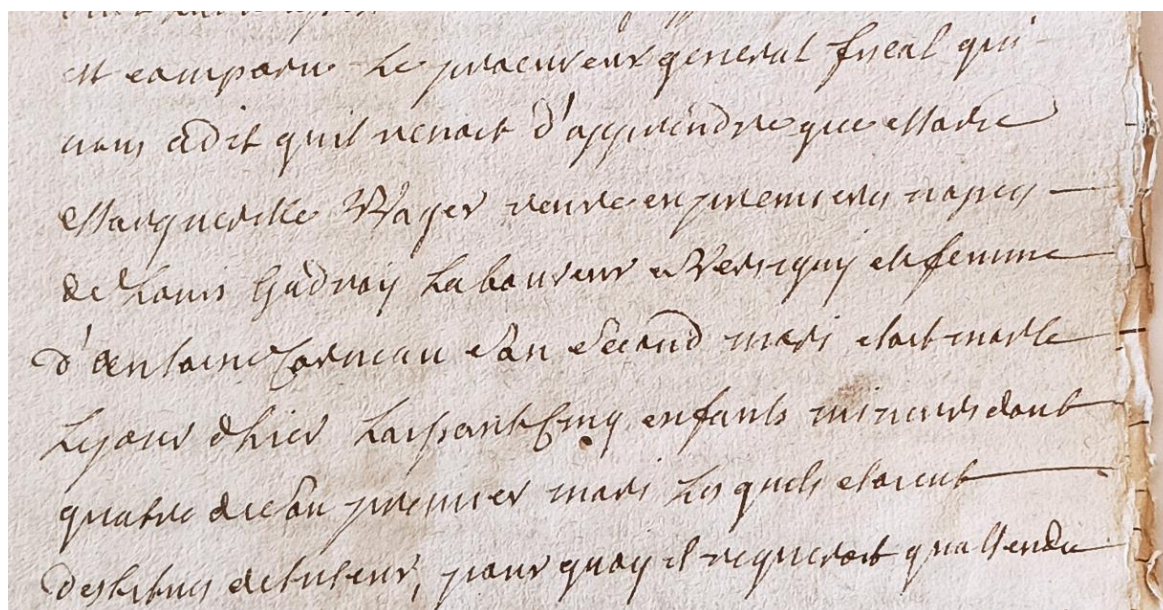 est comparu Le procureur general fiscal qui
nous a dit quil venoit d'apprendre que Marie
Margueritte Wager veuve en premieres nopces
de Louis Gadroy Laboureur a Versigny et femme
d'Antoine Corneau son second mari etoit morte
Le jour d'hier Laissant Cinq enfants mineurs dont
quatre de son premier mari Les quels etoient
destitués de tuteur, pour quoy il requeroit qu'attendu